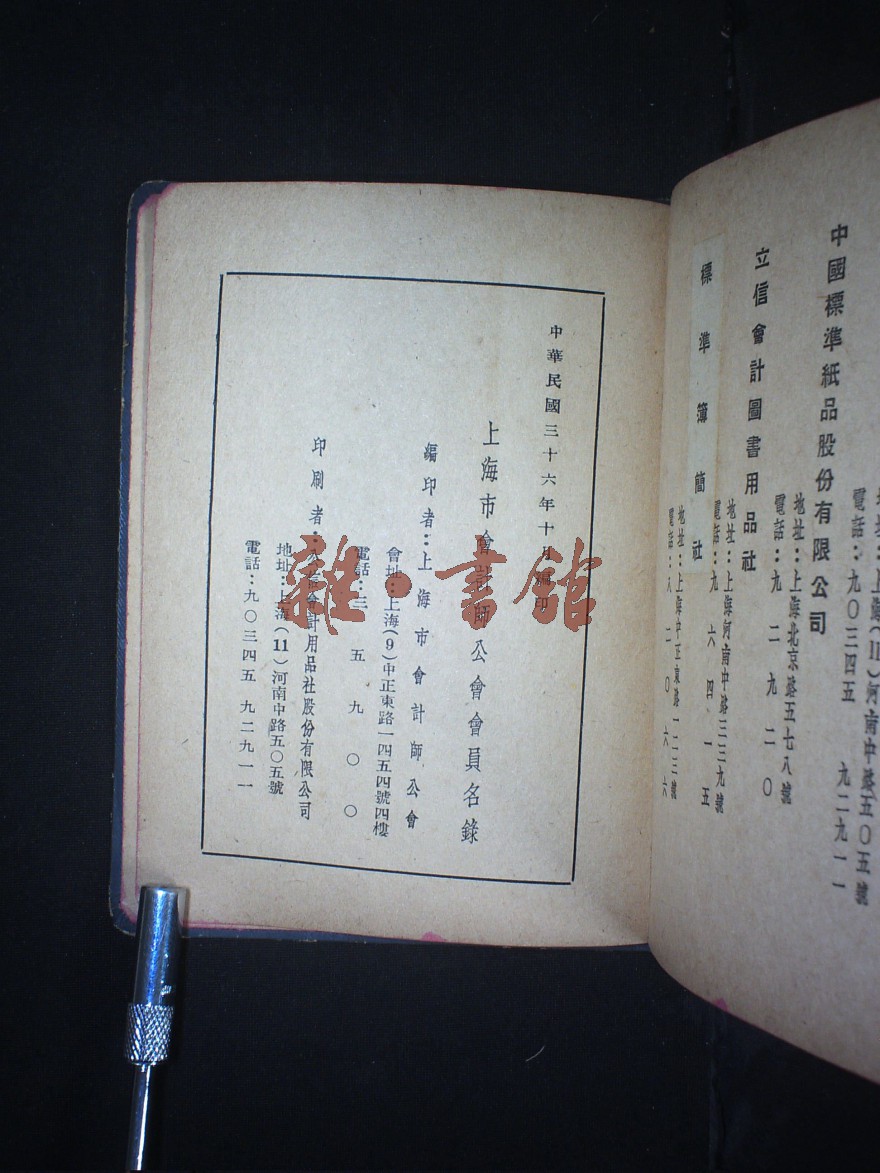 地址：上海(11)河南中路五〇五號
電話：九〇三四五　九二九一一
中國標準紙品股份有限公司
地址：上海北京路五七八號
電話：九二九二〇
立信會計圖書用品社
地址：上海河南中路三三九號
電話：九六四一五
標準簿簡社
地址：上海中正東路一二三號
電話：八二〇六六
中華民國三十六年十月編印
上海市會計師公會會員名錄
編印者：上海市會計師公會
會址：上海(9)中正東路一四五四號四樓
電話：三五九〇〇
印刷者：公信會計用品社股份有限公司
地址：上海(11)河南中路五〇五號
電話：九〇三四五　九二九一一
雜·書館